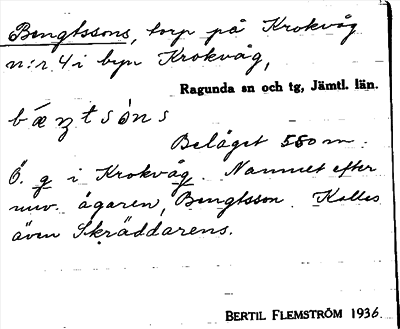 Bengtssons, torp på Krokvåg
n:r 4 i byn Krokvåg,
Ragunda sn och tg, Jämtl. län.
Beläget 550 m.
Ö. g i Krokvåg. Namnet efter
nuv. ägaren, Bengtsson. Kallas
även Skräddarens.
BERTIL FLEMSTRÖM 1936.